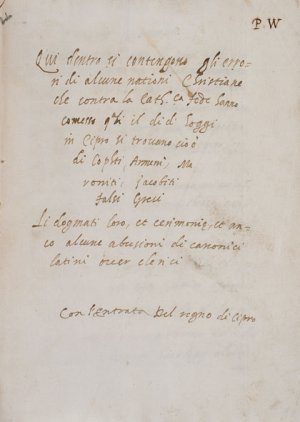 P. W
Qui dentro si contengono gli erro-
ri di alcune nationi Christiane
che contra la Cath.ca fede hanno
comesso q̃li il di d'hoggi
in Cipro si trovano cioè
di Cophti, Armeni, Ma
roniti, Jacobiti
falsi Greci
Li dogmati loro, et cerimonie, et an-
co alcune abusioni di canonici
latini over clerici
Con l'entrata del regno di Cipro